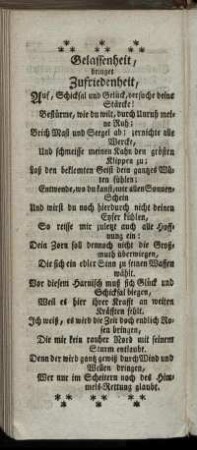 Gelassenheit,
bringet
Zufriedenheit,
Auf, Schicksal und Gelück, versuche deine
Stärcke!
Bestürme, wie du wilt, durch Unruh mei-
ne Ruh;
Brich Mast und Seegel ab; zernichte alle
Wercke,
Und schmeisse meinen Kahn den größten
Klippen zu;
Laß den beklemten Geist dein gantzes Wü-
ten fühlen;
Entwende, wo du kanst, mir allen Sonnen-
Schein
Und wirst du noch hierdurch nicht deinen
Eyfer kühlen,
So reisse mir zuletzt auch alle Hoff-
nung ein:
Dein Zorn soll dennoch nicht die Groß-
muth überwiegen,
Die sich ein edler Sinn zu seinen Waffen
wählt.
Vor diesem Harnisch muß sich Glück und
Schicksal biegen,
Weil es hier ihrer Krafft an weiten
Kräfften fehlt.
Ich weiß, es wird die Zeit doch endlich Ro-
sen bringen,
Die mir kein rauher Nord mit seinem
Sturm entlaubt.
Denn der wird gantz gewiß durch Wind und
Wellen dringen,
Wer nur im Scheitern noch des Him-
mels-Rettung glaubt.